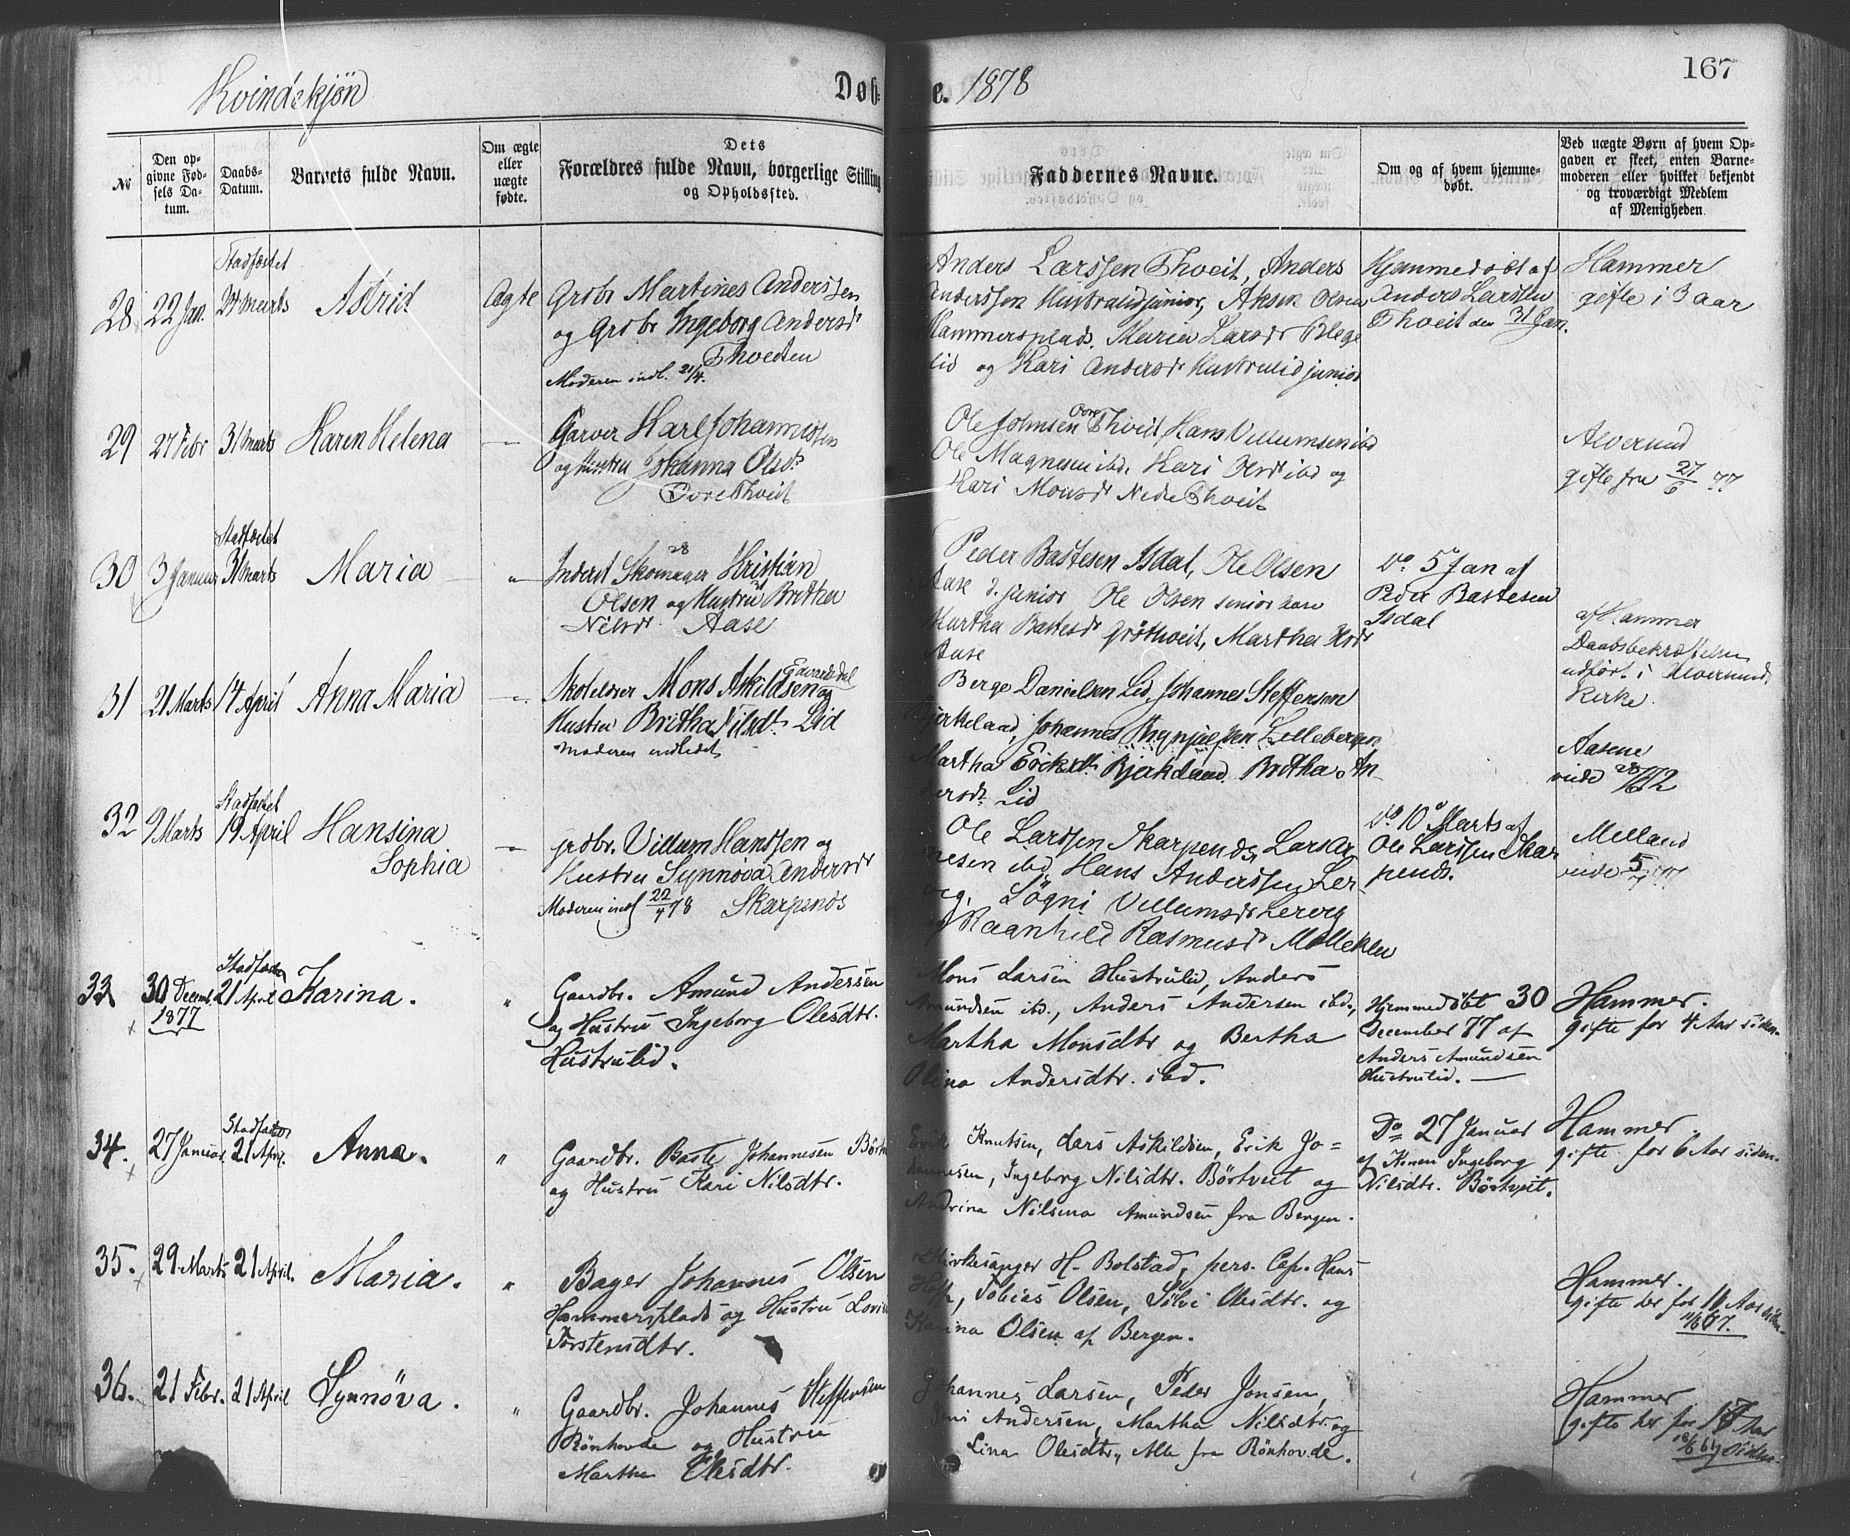 167
Kvindekjön Døb- e. 1878
№
Den op-
givne Fød-
sels Da-
tum.
Daabs-
Datum.
Barnets fulde Navn.
Om ægte
eller
uægte
fødte.
Dets
Forældres fulde Navn, borgerlige Stilling
og Opholdssted.
Faddernes Navne.
Om og af hvem hjemme-
døbt.
Ved uægte Børn af hvem Op-
gaven er skeet, enten Barne-
moderen eller hvilket bekjendt
og troværdigt Medlem
af Menigheden.
28 22 Jan.
Stadfæstet
24 Marts
Astrid
Ægte
Grbr Martines Anderssen
og Grbr Ingeborg Andersdr
Thveiten
Moderen indl. 21/4.
Anders Larssen Thveit, Anders
Anderssen Hustrulid junior, Aksen Olsen
Hammersplads, Maria Larsdr Blege
lid og Kari Andersdr Hustrulid junior
Hjemmedøbt af
Anders Larssen
Thveit den 31 Jan.
Hammer
gifte i 3 aar
29 27 Febr 31 Marts
Karen Helena
—
Garver Karl Johannessen
og Hustru Johanna Olsdr
Øvre Thveit
Ole Johnsen Øvre Thveit, Hans Villumsen ibd
Ole Magnesen ibd. Kari Olsdr ibd og
Kari Monsdr Nedre Thveit
Alversund
gifte fra 27/6 77
30 3 Januar
Stadfæstet
31 Marts
Maria
—
Inderst Skomager Kristian
Olsen og Hustru 28 Britha
Nilsdr. Aase
Peder Bastesen Isdal, Ole Olsen
Aase d. junior Ole Olsen senior Aase
Martha Bastesdr Gröthveit, Martha
Aase
Do 5 Jan af
Peder Bastesen
Isdal
af Hammer
Daabsbekræftelsen
udført i Alversund
Kirke.
31 21 Marts 14 April
Anna Maria
—
Skolelærer Mons Askildsen og
Hustru Britha Nilsdr Lid
Moderen indledet
Berge Danielsen Lid, Johannes Steffensen
Bjerkeland, Johannes Lilleberge,
Martha Ericksdr Bjerkeland. Britha An-
dersdr Lid
Aasene
vide 28/6 72
32 9 Marts
Stadfæstet
19 April
Hansina
Sophia
—
grdbr. Villum Hanssen og
Hustru Synnöva Andersdr
Moderen indl 22/4 78 Skarpenes
Ole Larssen Skarpenes, Lars Ar
nesen ibd Hans Anderssen Ler-
veg, Sögni Villumsdr Lerveg
og Raanhild Rasmusdr Mölleklev
Do 10 Marts af
Ole Larssen Skar
penes.
Melland
vide 5/ 77
33 30 Decemb.
1877
Stadfæstet
21 April
Karina.
"
Gaardbr. Amund Andersen
og Hustru Ingeborg Olesdtr.
Hustrulid.
Mons Larsen Hustrulid, Anders
Amundsen ibd., Anders Andersen ibd.,
Martha Monsdtr og Bertha
Olina Andersdtr. ibd.
Hjemmedöbt 30
December 77 af
Anders Amundsen
Hustrulid. —
Hammer.
gifte for 4 Aar siden.
34. 27 Januar
Stadfæstet
21 April
Anna.
"
Gaardbr. Baste Johannesen Börtv
og Hustru Kari Nilsdtr.
Erik Knutsen, Lars Askildsen, Erik Jo-
hannesen, Ingeborg Nilsdtr. Börtveit og
Andrina Nilsena Amundsen fra Bergen.
Do 27 Januar
af Konen Ingeborg
Nilsdtr. Börtveit.
Hammer.
gifte for 6 Aar siden.
35. 29 Marts 21 April.
Maria.
"
Bager Johannes Olsen
Hammersplads og Hustru Lovise
Torstensdtr.
Kirkesanger H. Bolstad, pers. Cap. Hans
Hoff, Tobias Olsen, Silvi Olesdtr. og
Karina Olsen af Bergen.
Hammer.
Gifte her for 10 Aar siden.
11/6 67.
36. 21 Febr. 21 April
Synnöva.
"
Gaardbr. Johannes Steffensen
Rönhovde og Hustru
Martha Olesdtr.
Johannes Larsen, Peder Jonsen,
Jens Andersen, Martha Nilsdtr. og
Lina Olesdtr., Alle fra Rönhovde.
Hammer
gifte her for 14 Aar
18/6 64 siden.